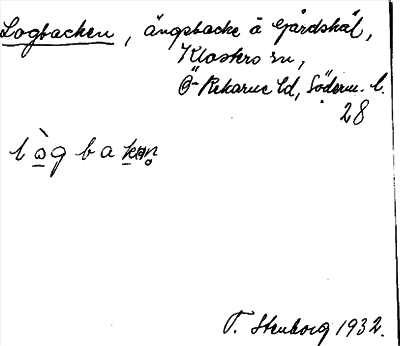 Logbacken, ängsbacke å Gårdskäl,
Klosters sn,
Ö-Rekarne hd, Söderm. l.
28
lògbakən
T. Stenborg 1932.